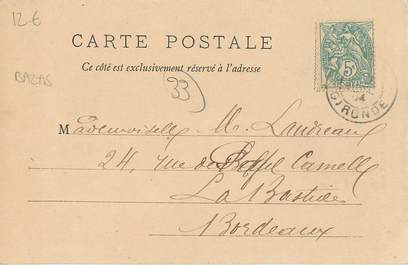 12 €
CARTE POSTALE
Ce côté est exclusivement réservé à l'adresse
BAZAS
33
5
GIRONDE
Mademoiselle M. Landreau
24, rue de
La Bastide
Bordeaux